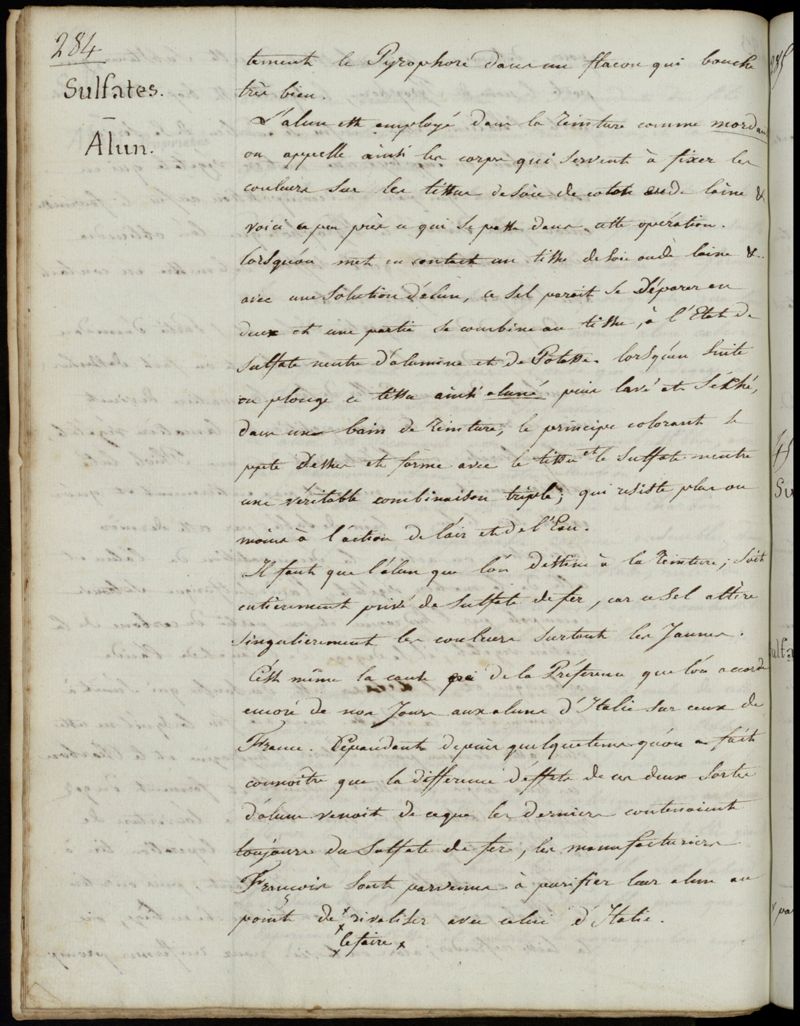 284
Sulfates.
Alun.
tement le Pyrophore dans un flacon qui bouche
très bien.
L'alun est employé dans la teinture comme mordant
on appelle ainsi les corps qui servent à fixer les
couleurs sur les tissus de soie de coton ou de laine &
voici a peu près ce qui se passe dans cette opération.
lorsqu'on met en contact un tissu de soie ou de laine &.
avec une solution d'alun, ce sel parait se séparer en
deux et une partie se combine au tissu, à l'Etat de
sulfate neutre d'alumine et de Potasse. lorsqu'en suite
on plonge ce tissu ainsi aluné puis lavé et séché,
dans un bain de teinture, le principe colorant se
jette dessus et forme avec le tissu et le sulfate neutre
une véritable combinaison triple; qui résiste plus ou
moins à l'action de l'air et de l'Eau.
Il faut que l'alun que l'on destine à la teinture, soit
entierement privé de sulfate de fer, car ce sel altère
singulierement les couleurs surtout les Jaunes.
C'est même la cause de la Préférence que l'on accorde
encore de nos Jours aux aluns d'Italie sur ceux de
France. Cependant depuis quelque tems qu'on a fait
connoître que la différence d'effets de ces deux sortes
d'aluns venoit de ce que les derniers contenaient
toujours du sulfate de fer, les manufacturiers
François sont parvenus à purifier leur alun au
point de x rivaliser avec celui d'Italie.
x le faire x